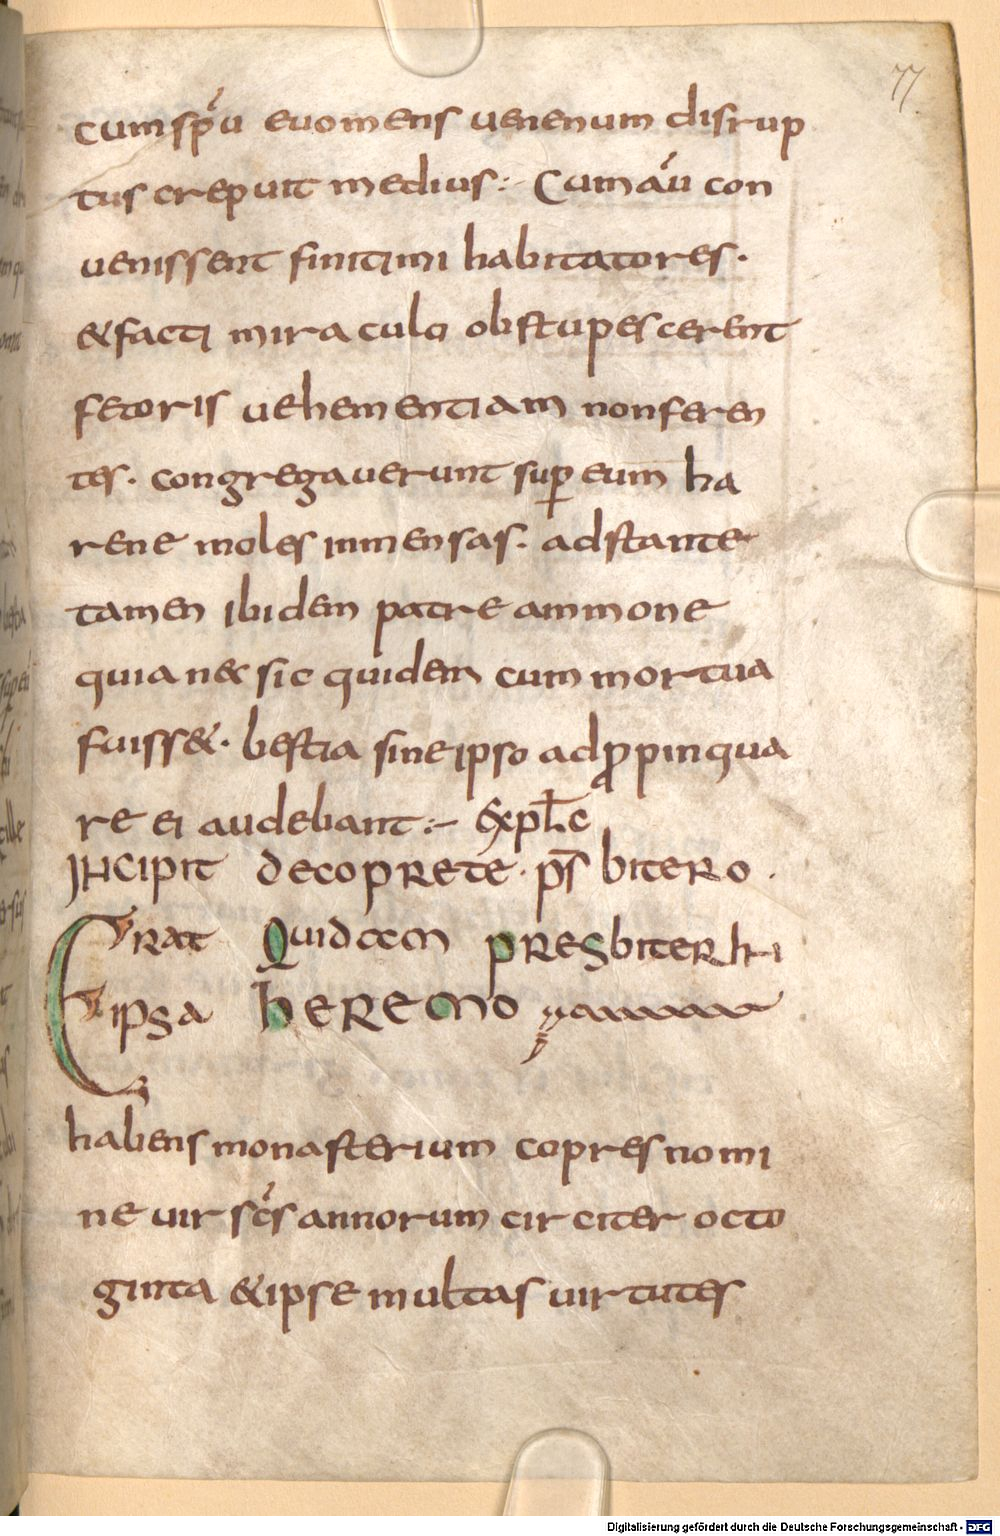 77
cum spu euomens uenenum disrup
tus crepuit medius:- Cum au con
uenissent finitimi habitatores.
& facti miraculo obstupescerent
fetoris uehementiam non feren
tes. congregauerunt sup eum ha
rene moles inmensas. adstante
tamen ibidem patre ammone
quia n& sic quidem cum mortua
fuiss&. bestia sine ipso adppinqua
re ei audebant:- Expl c
INCIPIT de coprete. psbitero.
Erat Quidam presbiter in
ipsa heremo
habens monasterium copres nomi
ne uir scs annorum circiter octo
ginta & ipse multas uirtutes
Digitalisierung gefördert durch die Deutsche Forschungsgemeinschaft - DFG